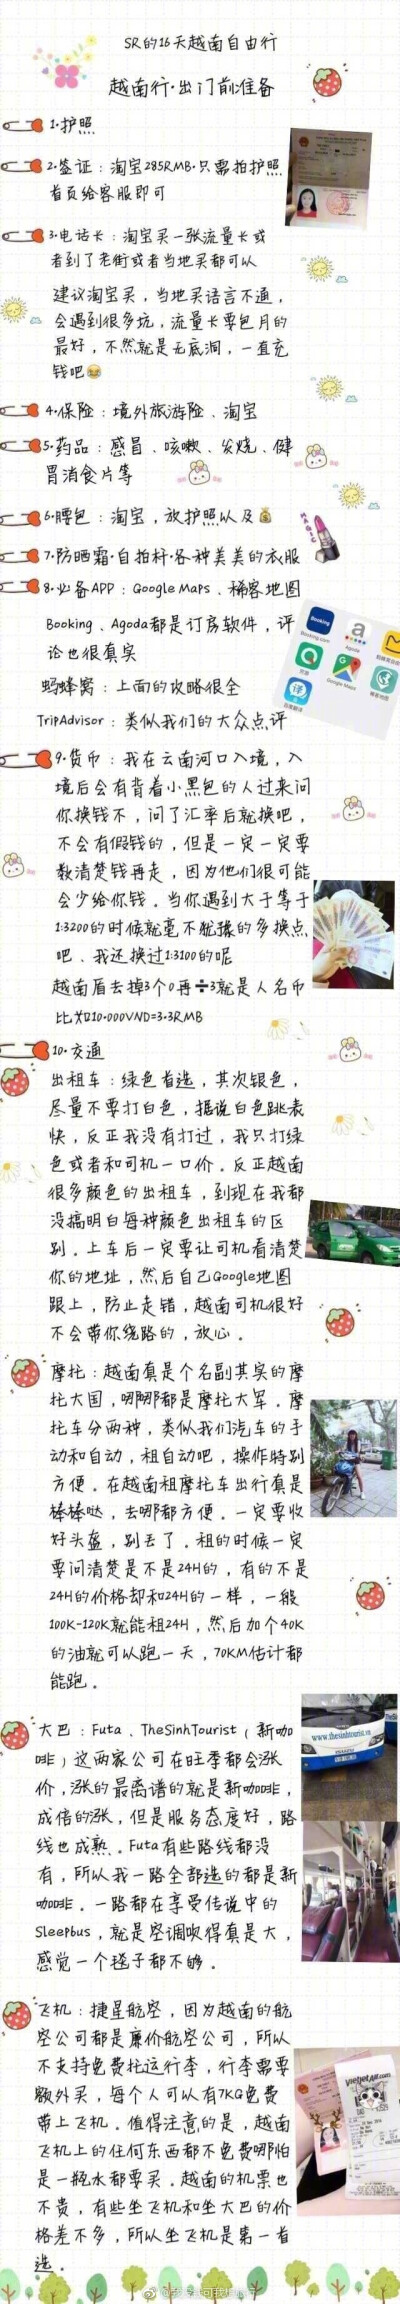 SR的16天越南自由行
越南行·出门前准备
1·护照
2·签证：淘宝285RMB·只需拍护照
首页给客服即可
3·电话卡：淘宝买一张流量卡或
者到了老街或者当地买都可以
建议淘宝买，当地买语言不通，
会遇到很多坑，流量卡要包月的
最好，不然就是无底洞，一直充
钱吧😂
4·保险：境外旅游险、淘宝
5·药品：感冒、咳嗽、发烧、健
胃消食片等
6·腰包：淘宝，放护照以及💰
7·防晒霜·自拍杆·各种美美的衣服
8·必备APP：Google Maps、稀客地图
Booking、Agoda都是订房软件，评
论也很真实
蚂蜂窝：上面的攻略很全
TripAdvisor：类似我们的大众点评
Booking.com
Agoda
Google Maps
百度翻译
MAGIC
9·货币：我在云南河口入境，入
境后会有背着小黑包的人过来问
你换钱不，问了汇率后就换吧，
不会有假钱的，但是一定一定要
数清楚钱再走，因为他们很可能
会少给你钱。当你遇到大于等于
1:3200的时候就毫不犹豫的多换点
吧、我还换过1:3100的呢
越南盾去掉3个0再➗3就是人名币
比如10·000VND=3·3RMB
10·交通
出租车：绿色首选，其次银色，
尽量不要打白色，据说白色跳表
快，反正我没有打过，我只打绿
色或者和司机一口价。反正越南
很多颜色的出租车，到现在我都
没搞明白每种颜色出租车的区
别。上车后一定要让司机看清楚
你的地址，然后自己Google地图
跟上，防止走错，越南司机很好
不会带你绕路的，放心。
摩托：越南真是个名副其实的摩
托大国，哪哪都是摩托大军。摩
托车分两种，类似我们汽车的手
动和自动，租自动吧，操作特别
方便。在越南租摩托车出行真是
棒棒哒，去哪都方便。一定要收
好头盔，别丢了。租的时候一定
要问清楚是不是24H的，有的不是
24H的价格却和24H的一样，一般
100K-120K就能租24H，然后加个40K
的油就可以跑一天，70KM估计都
能跑。
大巴：Futa、TheSinhTourist（新咖
啡）这两家公司在旺季都会涨
价，涨的最离谱的就是新咖啡，
成倍的涨，但是服务态度好，路
线也成熟。Futa有些路线都没
有，所以我一路全部选的都是新
咖啡。一路都在享受传说中的
Sleepbus，就是空调吹得真是大，
感觉一个毯子都不够。
www.thesinhtourist.vn
飞机：捷星航空，因为越南的航
空公司都是廉价航空公司，所以
不支持免费托运行李，行李需要
额外买，每个人可以有7KG免费
带上飞机。值得注意的是，越南
飞机上的任何东西都不免费哪怕
是一瓶水都要买。越南的机票也
不贵，有些坐飞机和坐大巴的价
格差不多，所以坐飞机是第一首
选。
vietjetAir.com